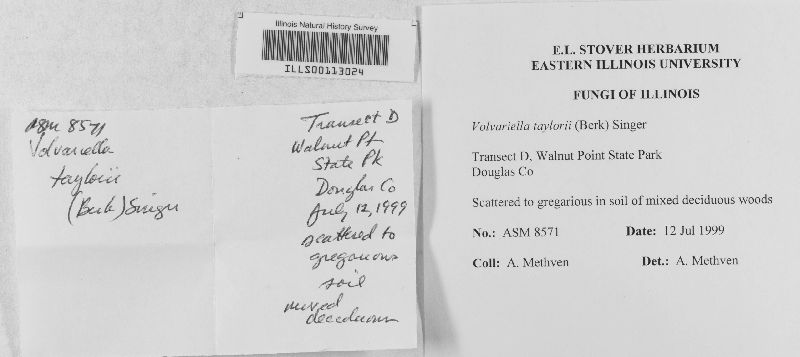 Illinois Natural History Survey
ILLS00113024
ASM 8571
Volvariella
taylorii
(Berk) Singer
Transect D
Walnut Pt
State Pk
Douglas Co
July 12, 1999
scattered to
gregarious
soil
mixed
deciduous
E.L. STOVER HERBARIUM
EASTERN ILLINOIS UNIVERSITY
FUNGI OF ILLINOIS
Volvariella taylorii (Berk) Singer
Transect D, Walnut Point State Park
Douglas Co
Scattered to gregarious in soil of mixed deciduous woods
No.: ASM 8571 Date: 12 Jul 1999
Coll: A. Methven Det.: A. Methven